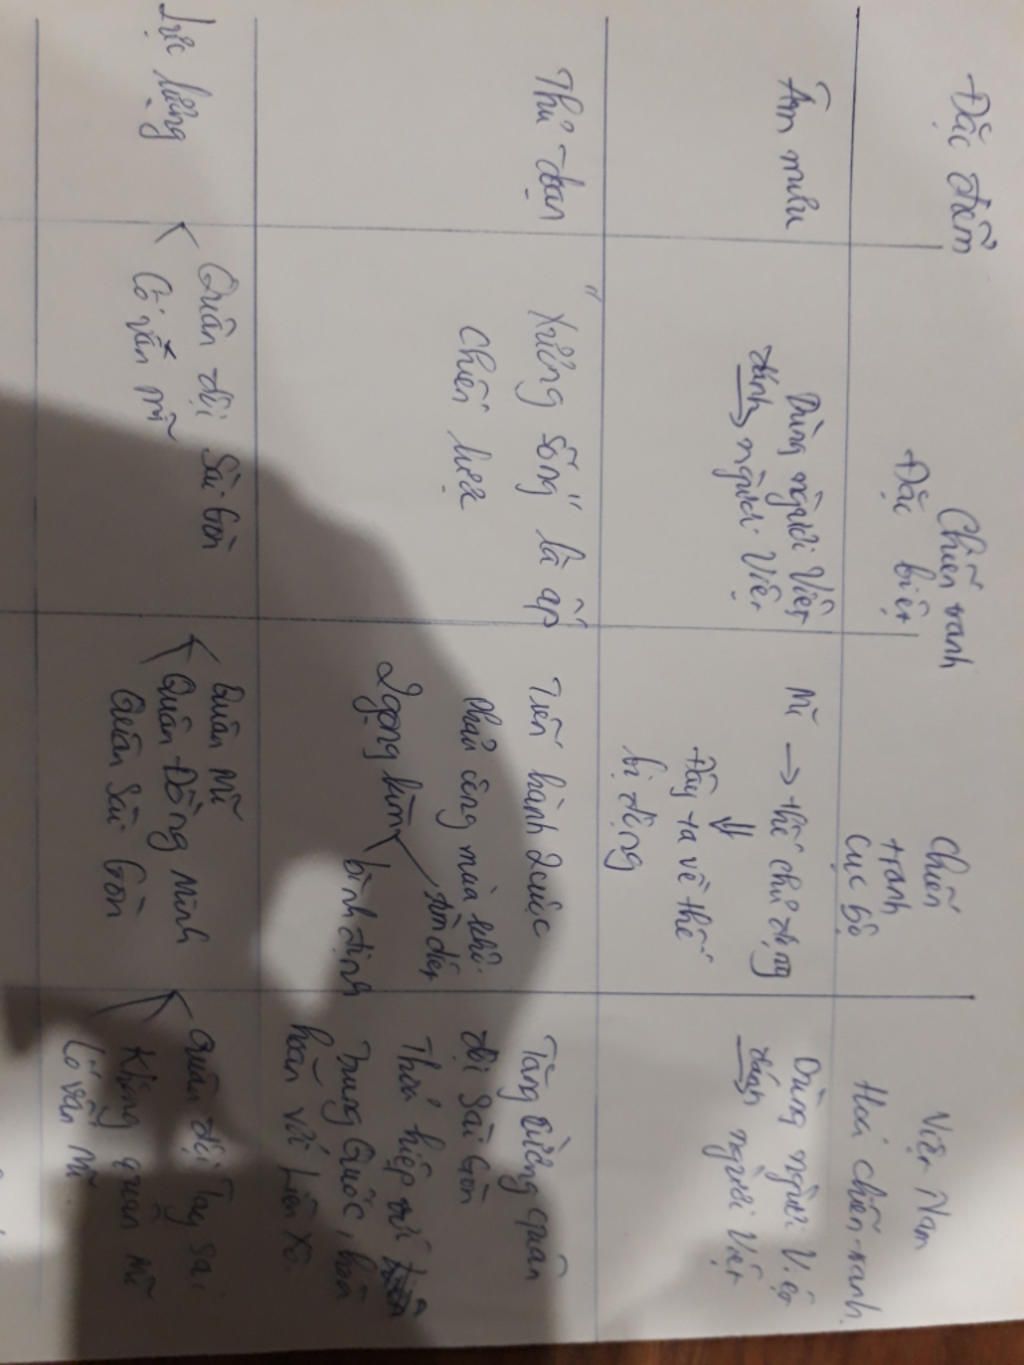 Đặc điểm
Chiến tranh
Đặc biệt
Chiến
tranh
cục bộ
Việt Nam
Hoá chiến tranh
Âm mưu
Dùng người Việt
đánh người Việt
Mĩ → thế chủ động
⇓
Đẩy ta về thế
bị động
Dùng người Việt
đánh người Việt
Thủ đoạn
"Xương sống" là ấp
chiến lược
Tiến hành 2 cuộc
phản công mùa khô.
2 gọng kìm
tìm diệt
bình định
Tăng cường quân
đội Sài Gòn
Thoả hiệp với
Trung Quốc, hòa
hoãn với Liên Xô.
Lực lượng
Quân đội Sài Gòn
Cố vấn Mĩ
Quân Mĩ
Quân Đồng Minh
Quân Sài Gòn
Quân đội Tay sai
Không quân Mĩ
Cố vấn Mĩ